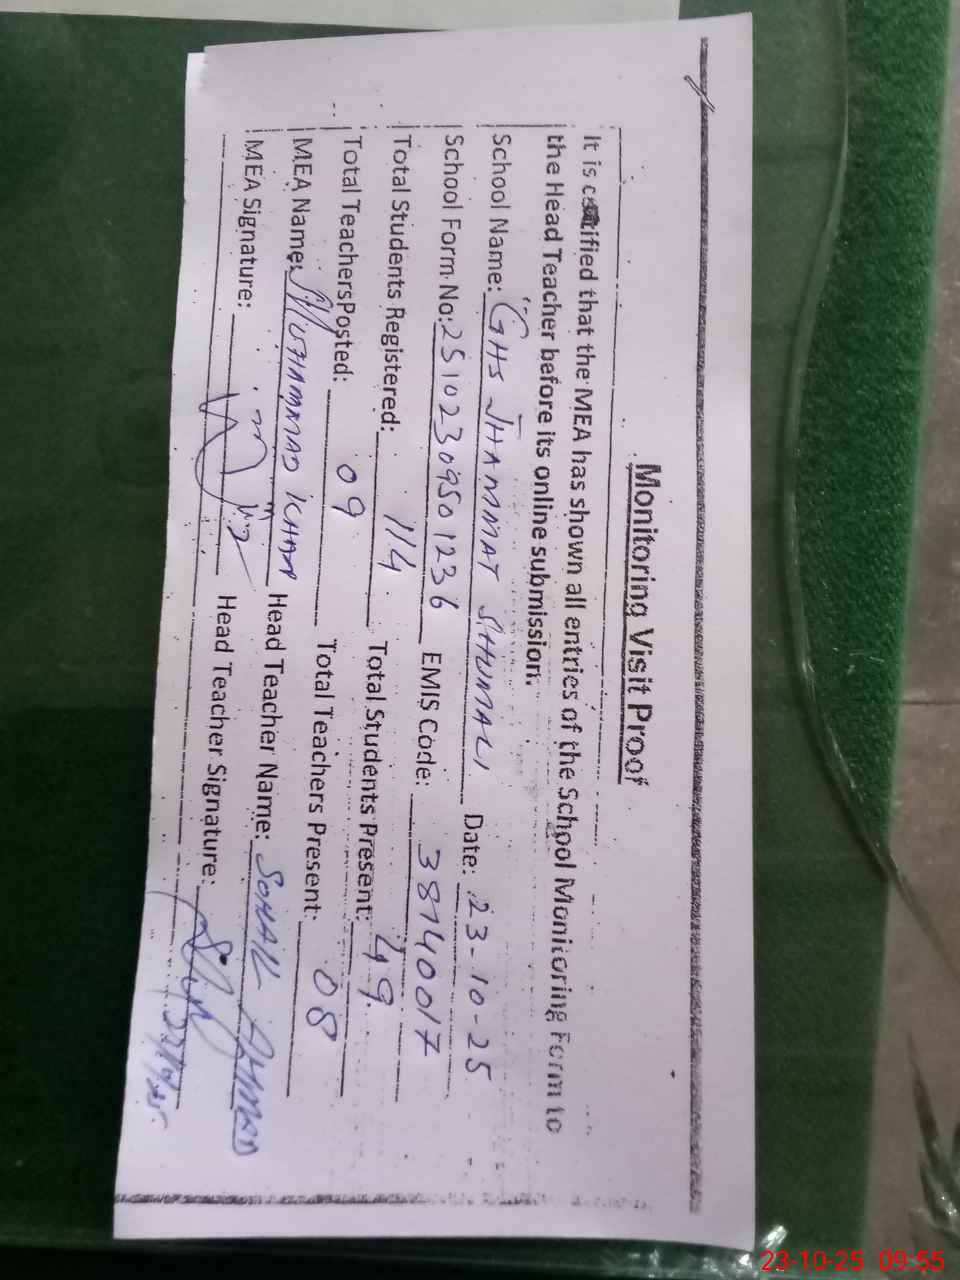 Monitoring Visit Proof
It is certified that the MEA has shown all entries of the School Monitoring Form to
the Head Teacher before its online submission.
School Name: GHS JHAMMAT SHUMALI Date: 23-10-25
School Form No: 25102309501236 EMIS Code: 38140017
Total Students Registered: 114 Total Students Present: 49
Total Teachers Posted: 09 Total Teachers Present: 08
MEA Name: MUHAMMAD KHAN Head Teacher Name: SOHAIL AHMED
MEA Signature: Head Teacher Signature:
23-10-25 09:55